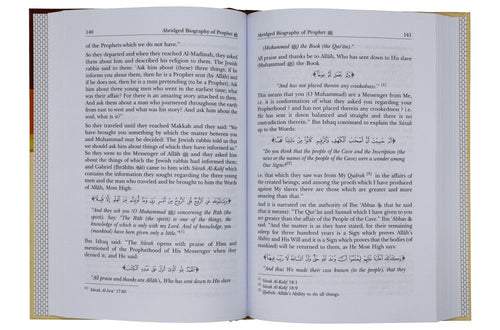 140
Abridged Biography of Prophet ﷺ
of the Prophets which we do not have."
So they departed and when they reached Al-Madinah, they
asked them about him and described his religion to them. The Jewish
rabbi said to them: "Ask him about (these) three things; if he
informs you about them, then he is a Prophet sent (by Allâh) and
if he does not, then he is a man pretending (to be a Prophet). Ask
him about three young men who went in the earliest time; what
was their affair? For there is an amazing story attached to them.
And ask them about a man who journeyed throughout the earth
from east to west and what was his story? And ask him about the
soul, what is it?"
So they traveled until they reached Makkah and they said: "We
have brought you something by which the matter between you
and Muhammad may be decided: The Jewish rabbi told us that
we should ask him about things of which they have informed us."
So they went to the Messenger of Allâh ﷺ and they asked him
about the things of which the Jewish rabbis had informed them;
and Gabriel (Ibrahim) came to him with Sûrah Al-Kahf which
contains the story of the young men regarding whom they asked
him and the man who traveled and he brought to him the Words
of Allâh, Most High:
"And they ask you (O Muhammad ﷺ) concerning the Rûh (the
spirit). Say: "The Rûh (the spirit) is one of the things, the
knowledge of which is only with my Lord. And of knowledge, you
(mankind) have been given only a little.
Ibn Ishaq said: "The Sûrah opens with praise of Him and
mentioned of the Prophethood of His Messenger when they
denied it and He said:
"All praise and thanks are Allâh's, Who has sent down to His slave
[1] Sûrah Al-Isra' 17:85
Abridged Biography of Prophet ﷺ
141
(Muhammad ﷺ) the Book (the Qur'ân)."
All praise and thanks be to Allâh, Who has sent down to His slave
(Muhammad ﷺ) the Book
﴿وَلَمْ يَجْعَل لَّهُ عِوَجًا﴾
"And has not placed therein any crookedness." [1]
This means that you (O Muhammad) are a Messenger from Me,
i.e. it is conformation of what they asked you regarding your
Prophethood ﷺ and has not placed therein any crookedness, i.e.
He has sent it down balanced and straight and there is no
contradiction therein." Ibn Ishaq continued to explain the Sûrah
up to the Words:
﴿أَمْ حَسِبْتَ أَنَّ أَصْحَٰبَ ٱلْكَهْفِ وَٱلرَّقِيمِ كَانُوا۟ مِنْ ءَايَٰتِنَا عَجَبًا﴾
"Do you think that the people of the Cave and the Inscription (the
news or the names of the people of the Cave) were a wonder among
Our Signs?"[2]
i.e. that which they saw from My Qudrah [3] in the affairs of
the created beings; and among the proofs which I have produced
against My slaves there are those which are greater and more
amazing than that."
And it is narrated on the authority of Ibn 'Abbas ﷺ that he said
(that it means): "The Qur'ân and Sunnah which I have given to you
are greater than the affair of the People of the Cave." Ibn 'Abbas said:
"And the matter is as they have stated, for their remaining
asleep for three hundred years is a Sign which proves Allâh's
Ability and His Will and it is a Sign which proves that the bodies (of
mankind) will be returned to them, as He Most High says:
"And thus We made their case known (to the people), that they
[1] Sûrah Al-Kahf 18:1
[2] Sûrah Al-Kahf 18:9
[3] Qudrah: Allâh's Ability to do all things.